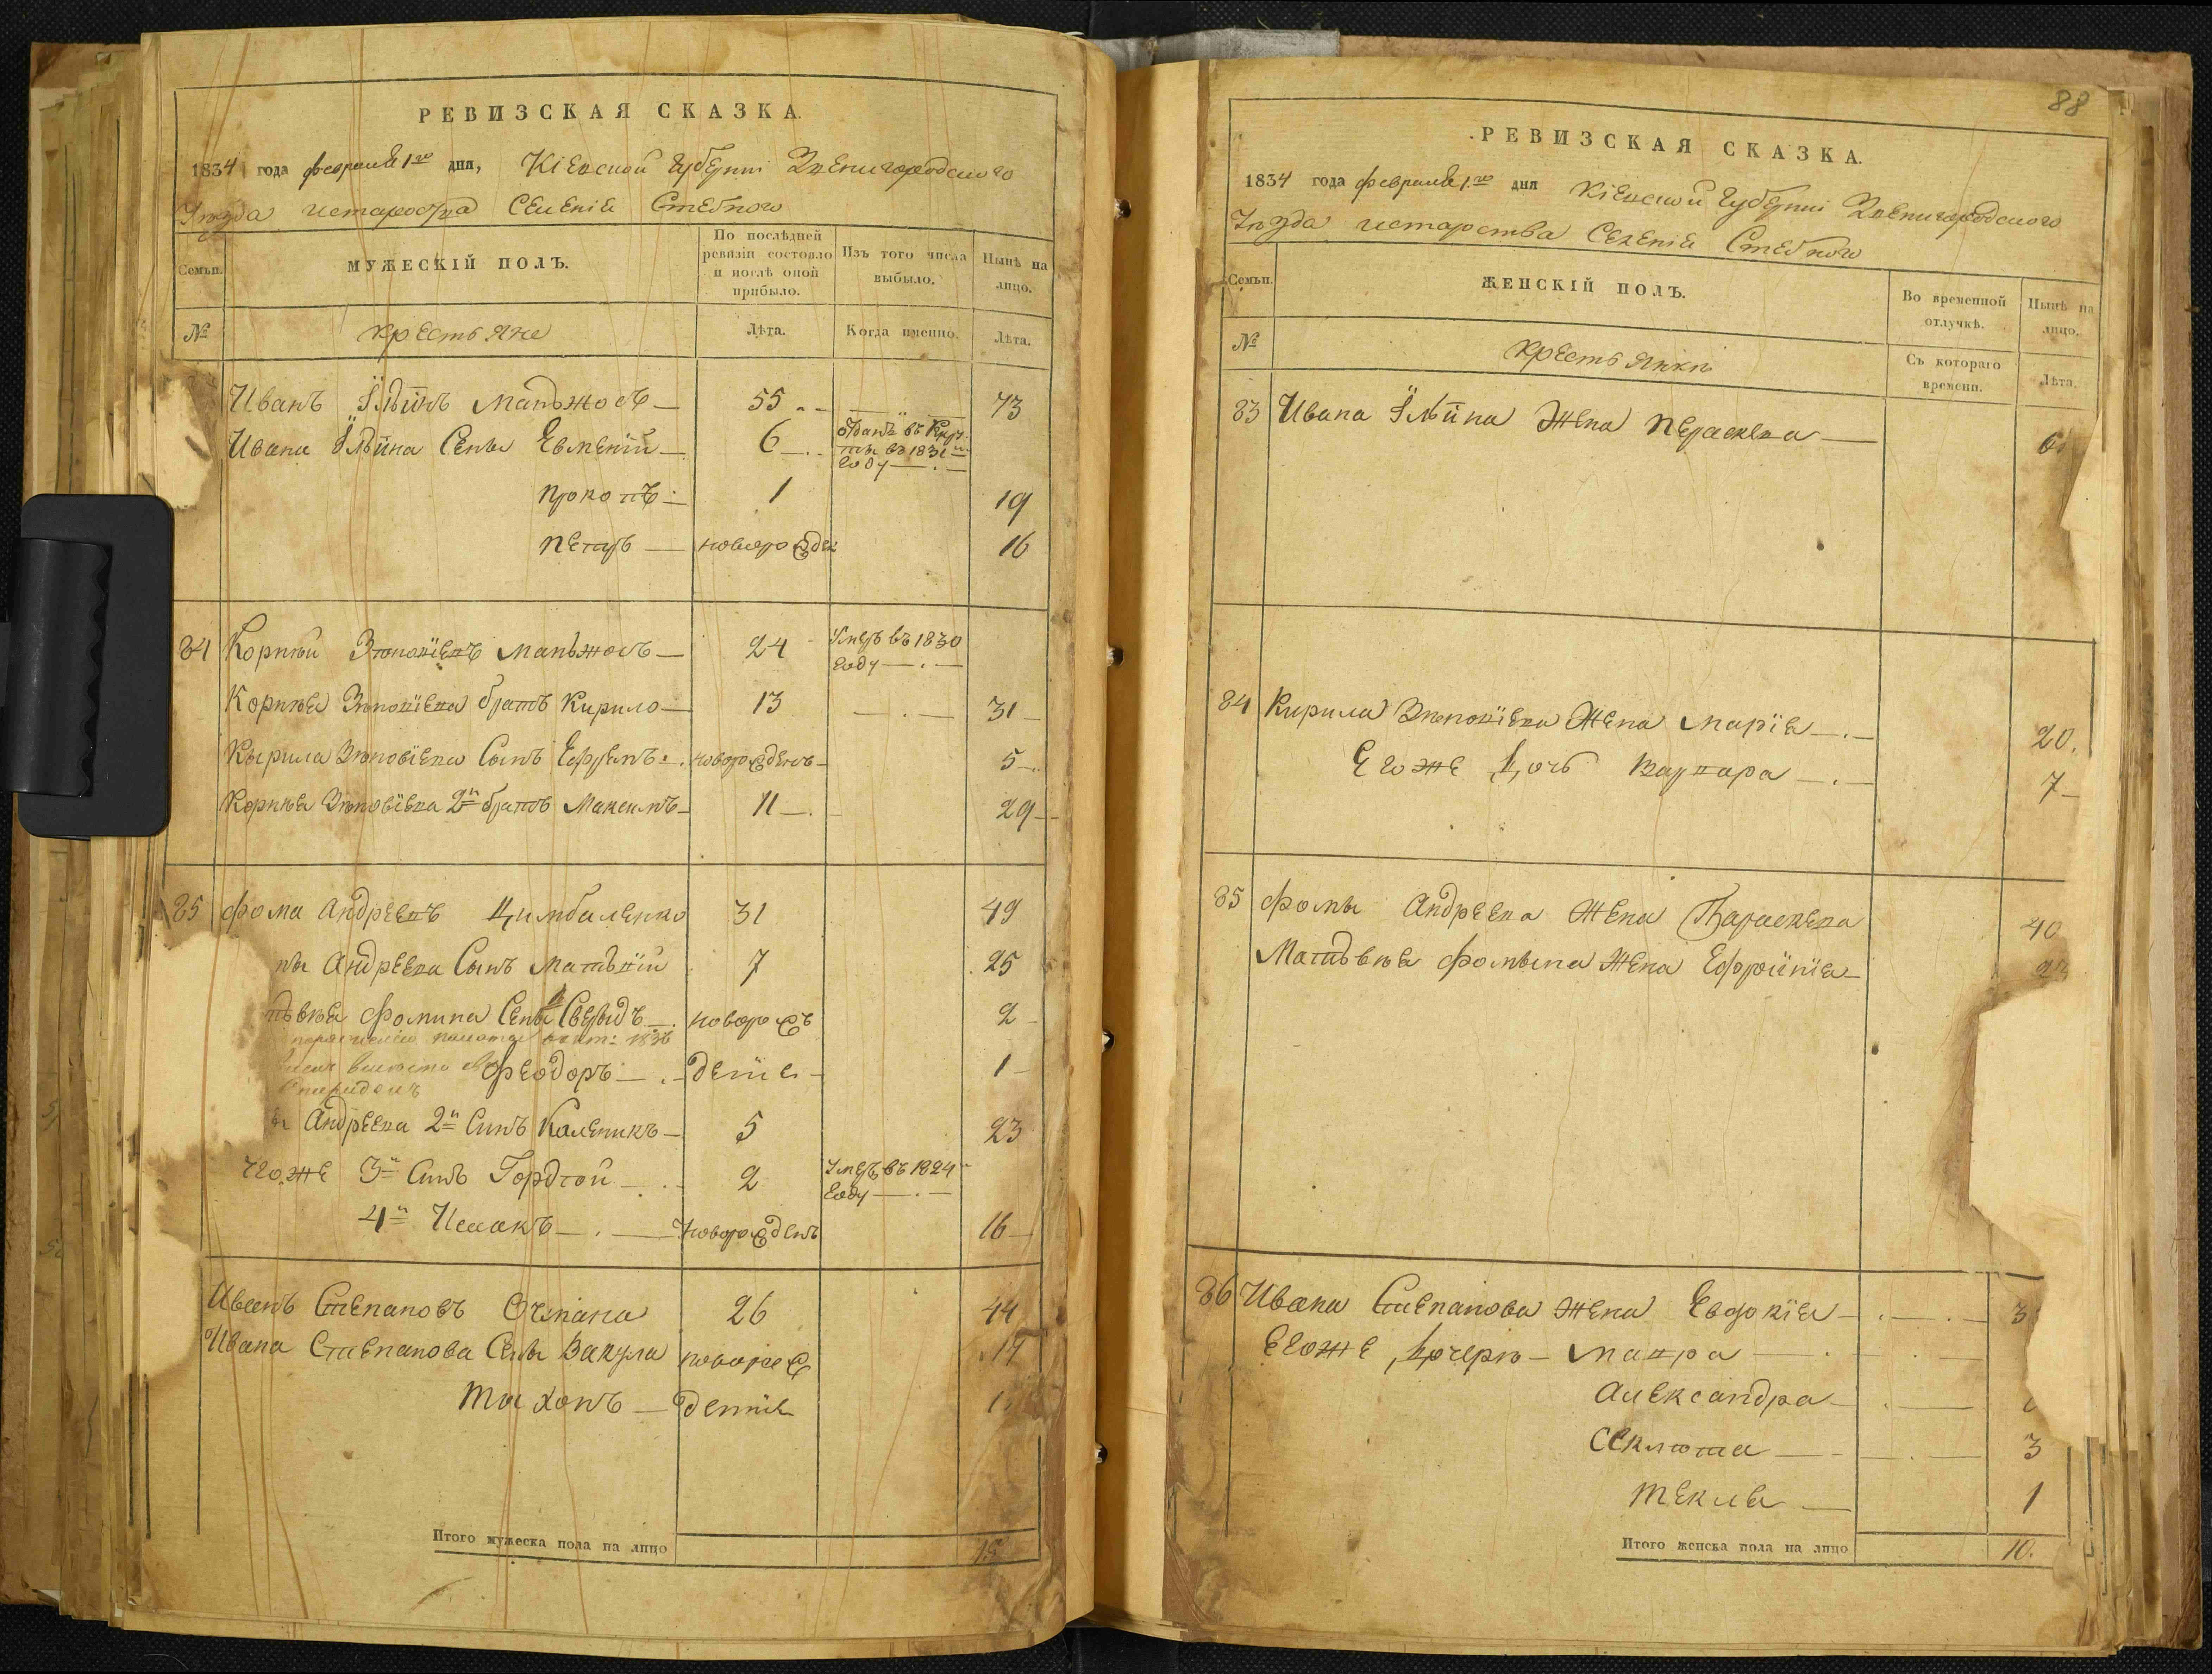 РЕВИЗСКАЯ СКАЗКА.
1834 года февраля 1го дня, Кіевской Губерніи Звенигородского
Уезда и староства Селенія Стебного
Семьи.
МУЖЕСКІЙ ПОЛЪ.
По послѣдней ревизіи состояло и послѣ оной прибыло.
Изъ того числа выбыло.
Нынѣ на лицо.
№
крестьяне
Лѣта.
Когда именно.
Лѣта.
Иванъ Ильинъ Манъжосъ — 55 73
Ивана Ильина Сены Евменій — 6 отданъ въ Рекру
ты въ 1831м
году
Прокопъ 1 19
Петръ — новорожден 16
84 Корнѣй Зѣновіевъ Манъжосъ — 24 Умеръ въ 1830
году
Корнѣя Зѣновіева братъ Кирило — 13 31
Кырила Зѣновіева Сынъ Ефремъ новорожденъ 5
Корнѣя Зѣновіева 2й братъ Максимъ 11 29
85 Фома Андреевъ Цимбаленко 31 49
мы Андреева Сынъ Матвій 7 25
ѣвѣя Фомина Сены Свыридъ новорож 2
Феодоръ — денiе 1
Андреева 2й Синъ Каленикъ — 5 23
Егоже 3й Синъ Гордѣй 2 Умеръ въ 1824
году
4й Исаакъ — новорожденъ 16
Иванъ Степановъ Очкана 26 44
Ивана Степанова Сены Вакула новорож 17
Тихонъ — денніе 1
Итого мужеска пола на лицо 15
88
РЕВИЗСКАЯ СКАЗКА.
1834 года февраля 1го дня Кіевской Губерніи Звенигородского
Уезда и старства Селенія Стебного
Семьи.
ЖЕНСКІЙ ПОЛЪ.
Во временной отлучкѣ.
Нынѣ на лицо.
№
крестьянки
Съ котораго времени.
Лѣта.
83 Ивана Ильина Жена Параскева — 6
84 Кирила Зѣновіева Жена Марія 20.
Егоже Дочь Варвара 7
85 Фомы Андреева Жена Параскева 40
Матвѣя Фомына Жена Ефросинія
86 Ивана Степанова Жена Евдокія 3
Егоже Дочери — Мавра
Александра
Секлюта 3
Текля 1
Итого женска пола на лицо 10.